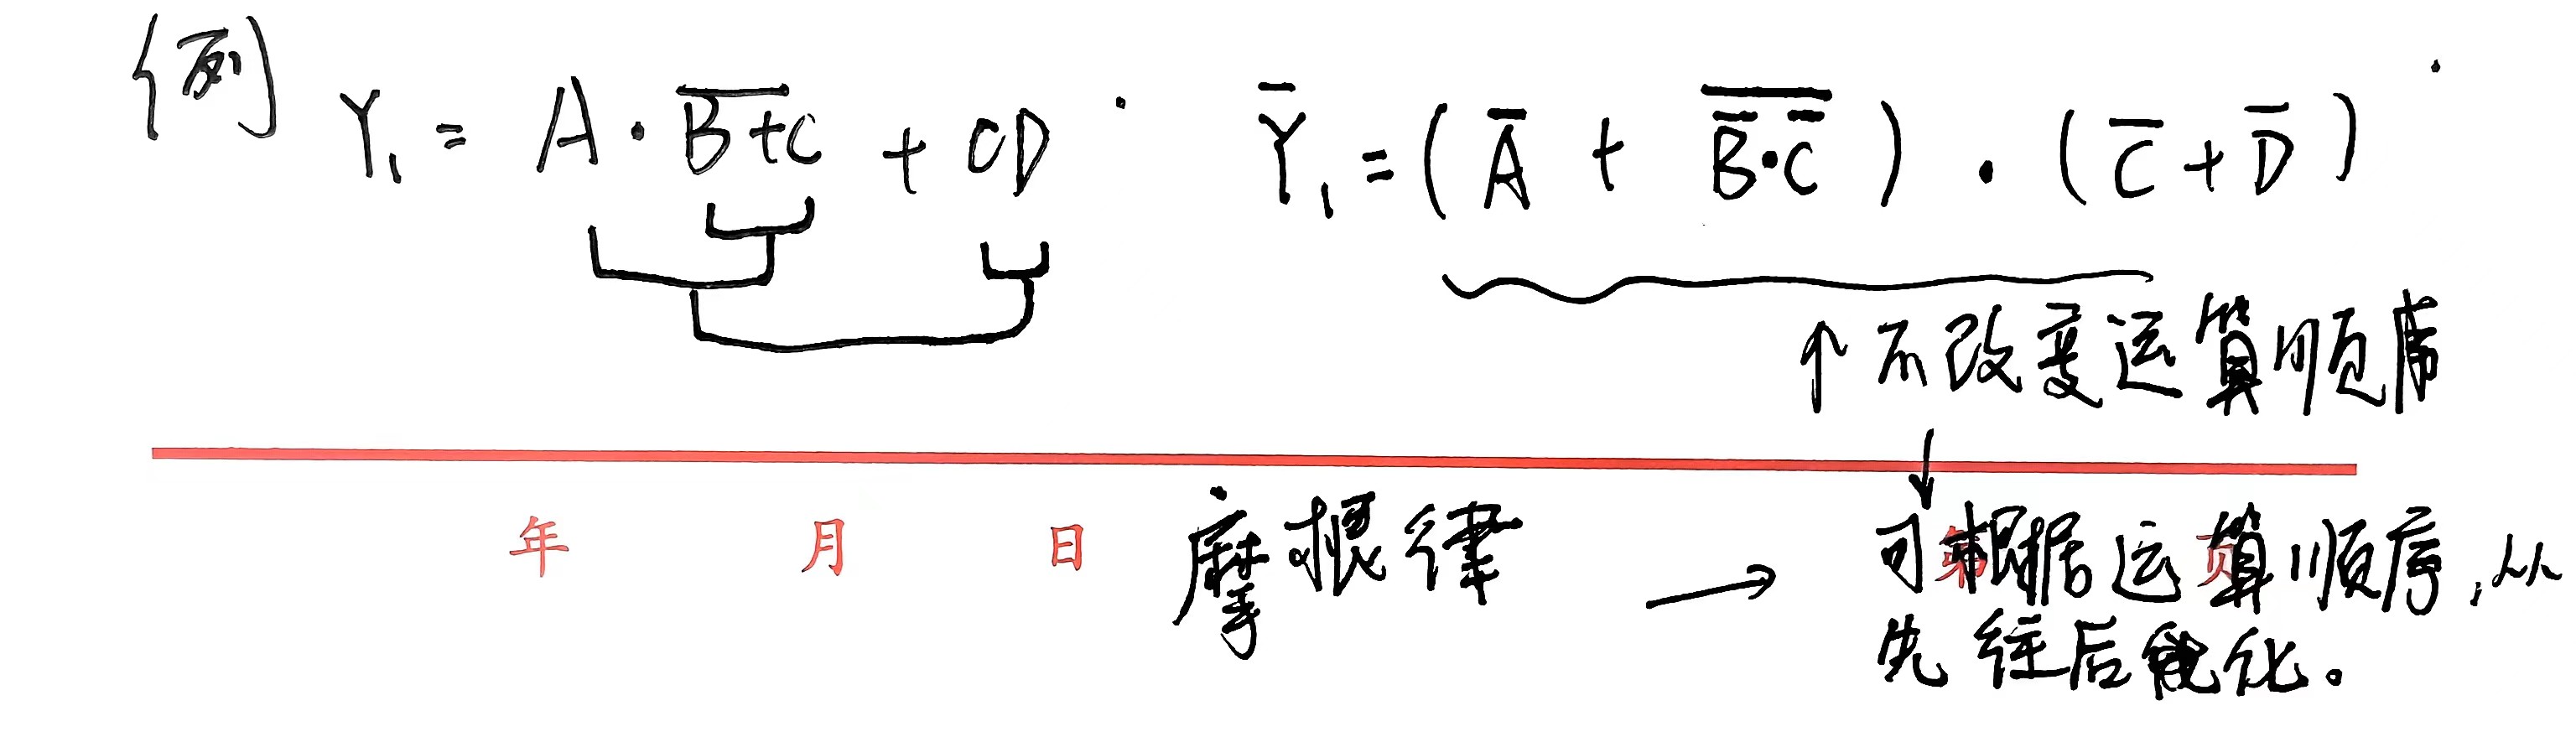 例 Y₁ = A·\overline{B+C} + CD  \overline{Y}₁ = (\overline{A} + \overline{\overline{B}·\overline{C}})·(\overline{C}+\overline{D})
↑不改变运算顺序
↓
年 月 日 摩根律 → 可根据运算顺序,从
先往后化。